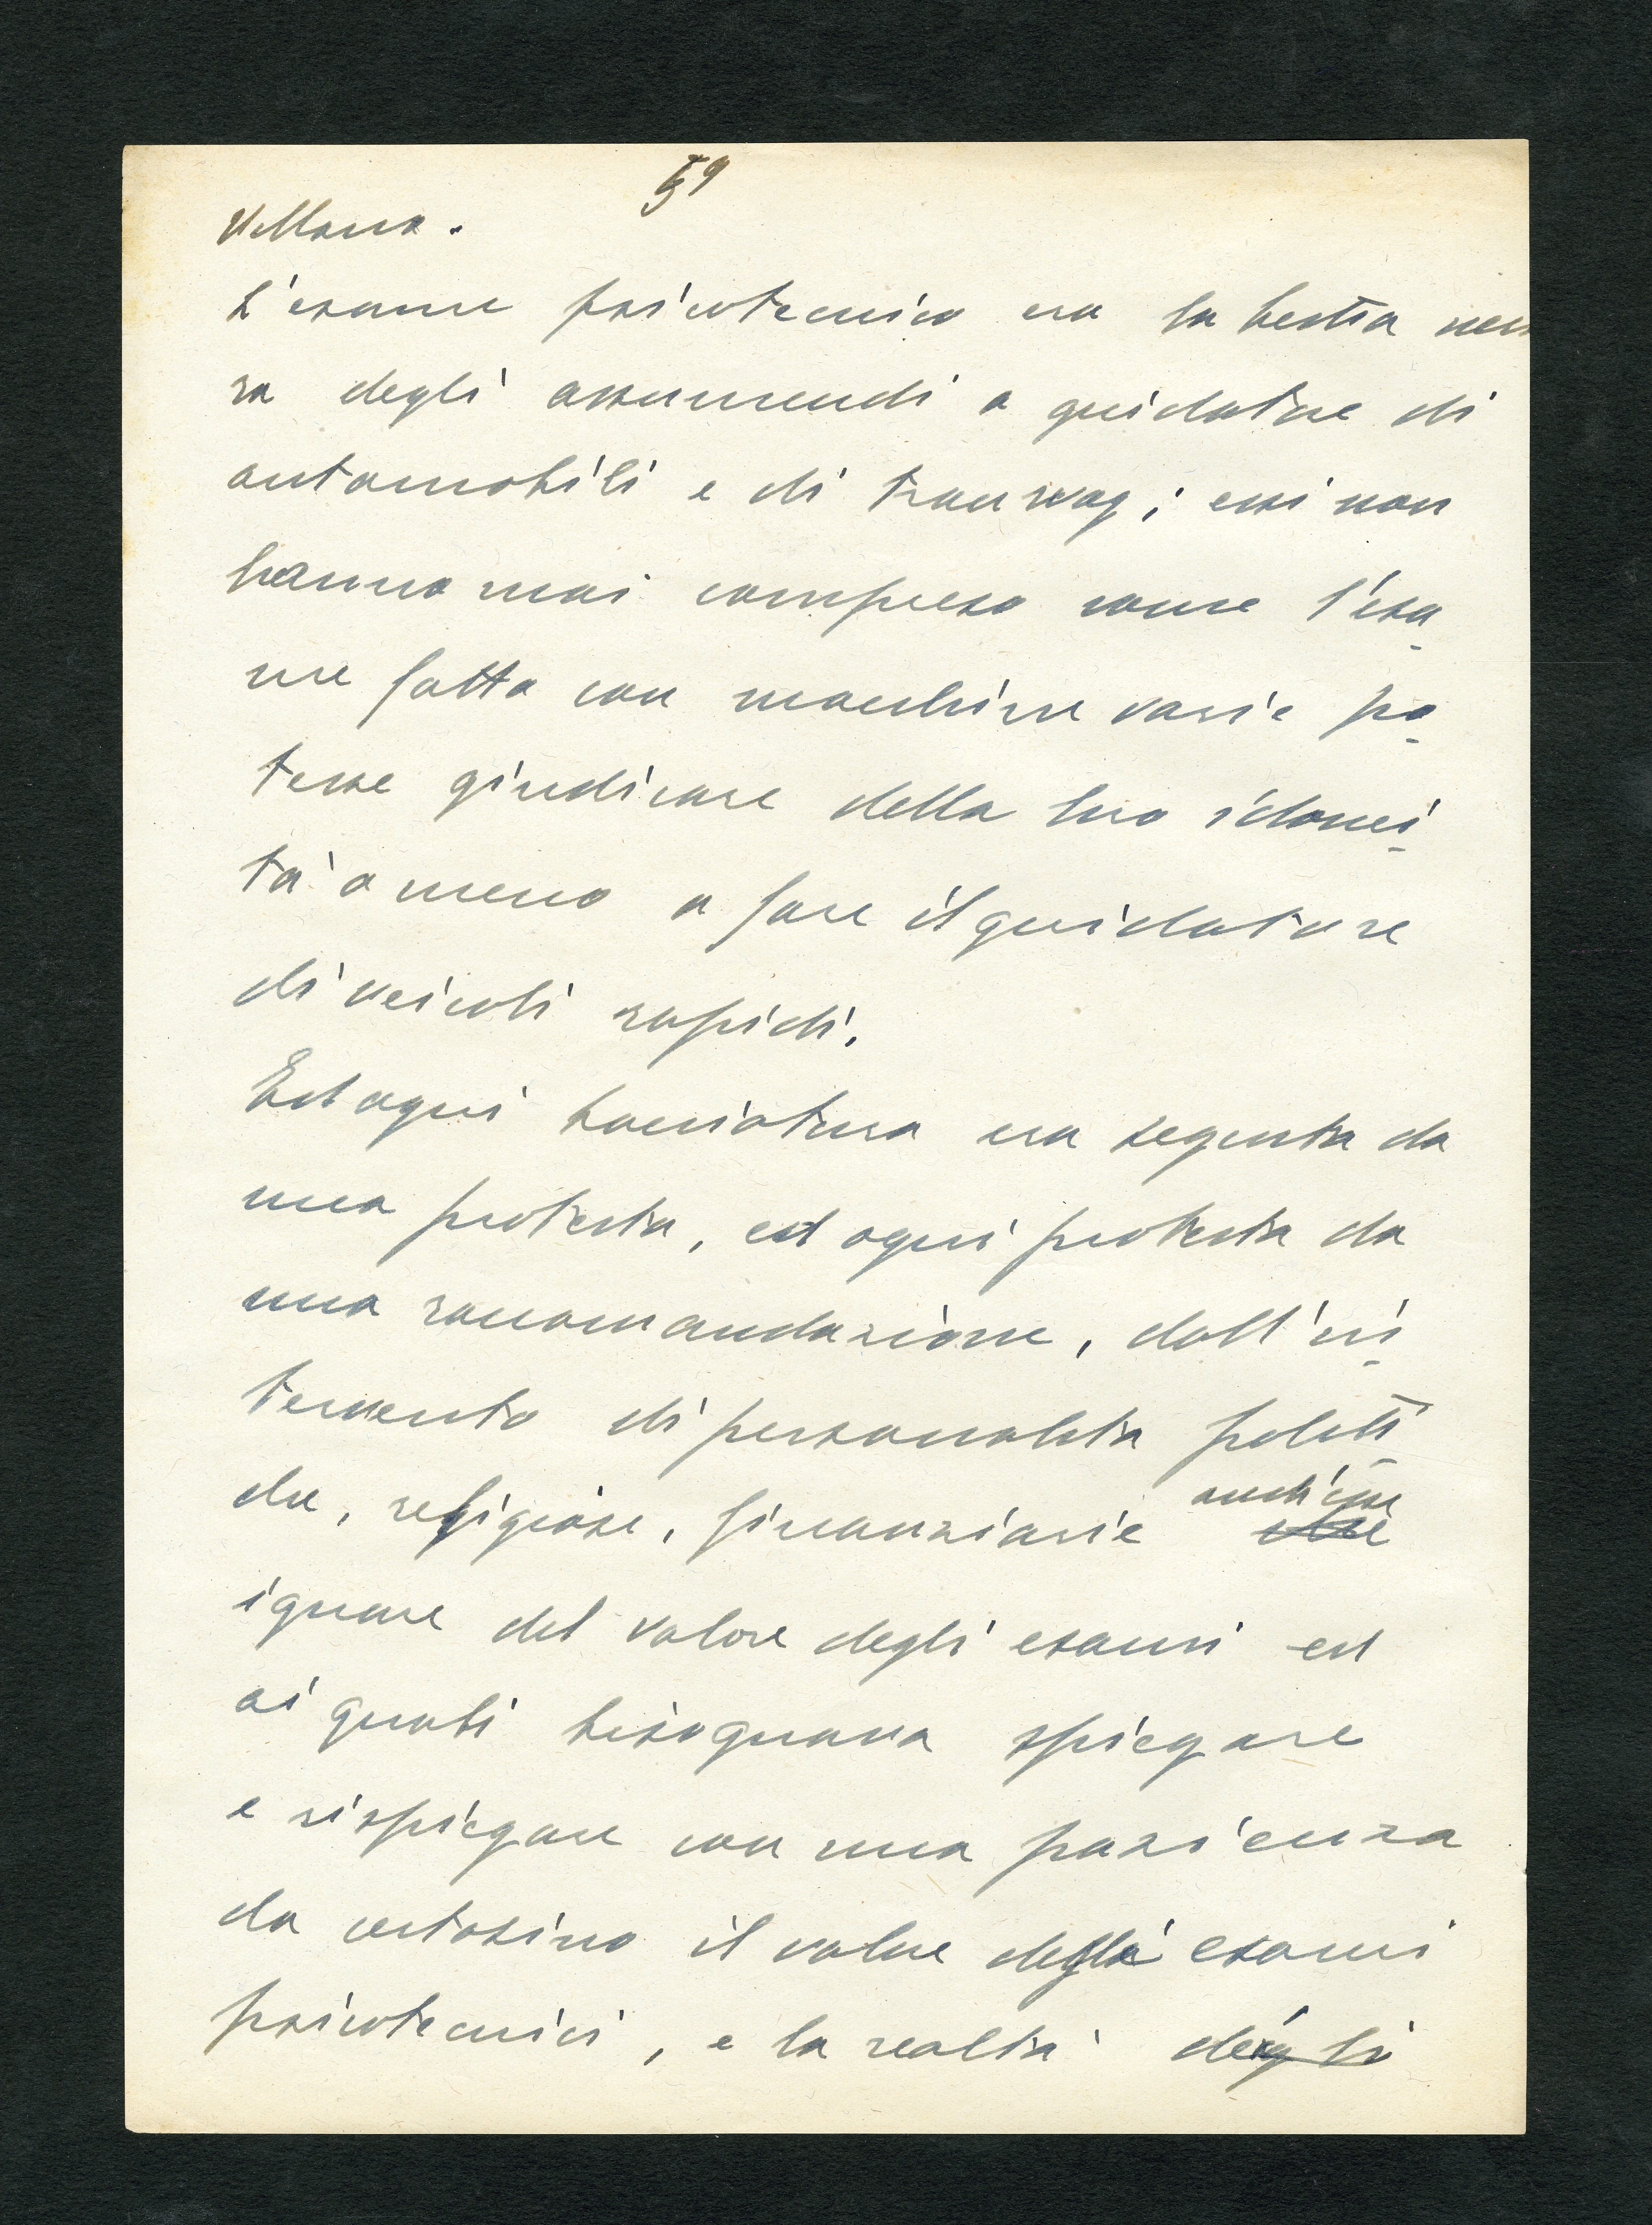 59
Villana.
L'esame psicotecnico era la bestia ne
ra degli assumendi a guidatore di
automobili e di tranway; essi non
hanno mai compreso come l'esa
me fatto con macchine varie po
tesse giudicare della loro idonei
tà o meno a fare il guidatore
di veicoli rapidi.
Ed ogni bocciatura era seguita da
una protesta, ed ogni protesta da
una raccomandazione, dall'in
tervento di personalità politi
che, religiose, finanziarie anch'esse
ignare del valore degli esami ed
ai quali bisognava spiegare
e rispiegare con una pazienza
da certosino il valore degli esami
psicotecnici, e la realtà dei